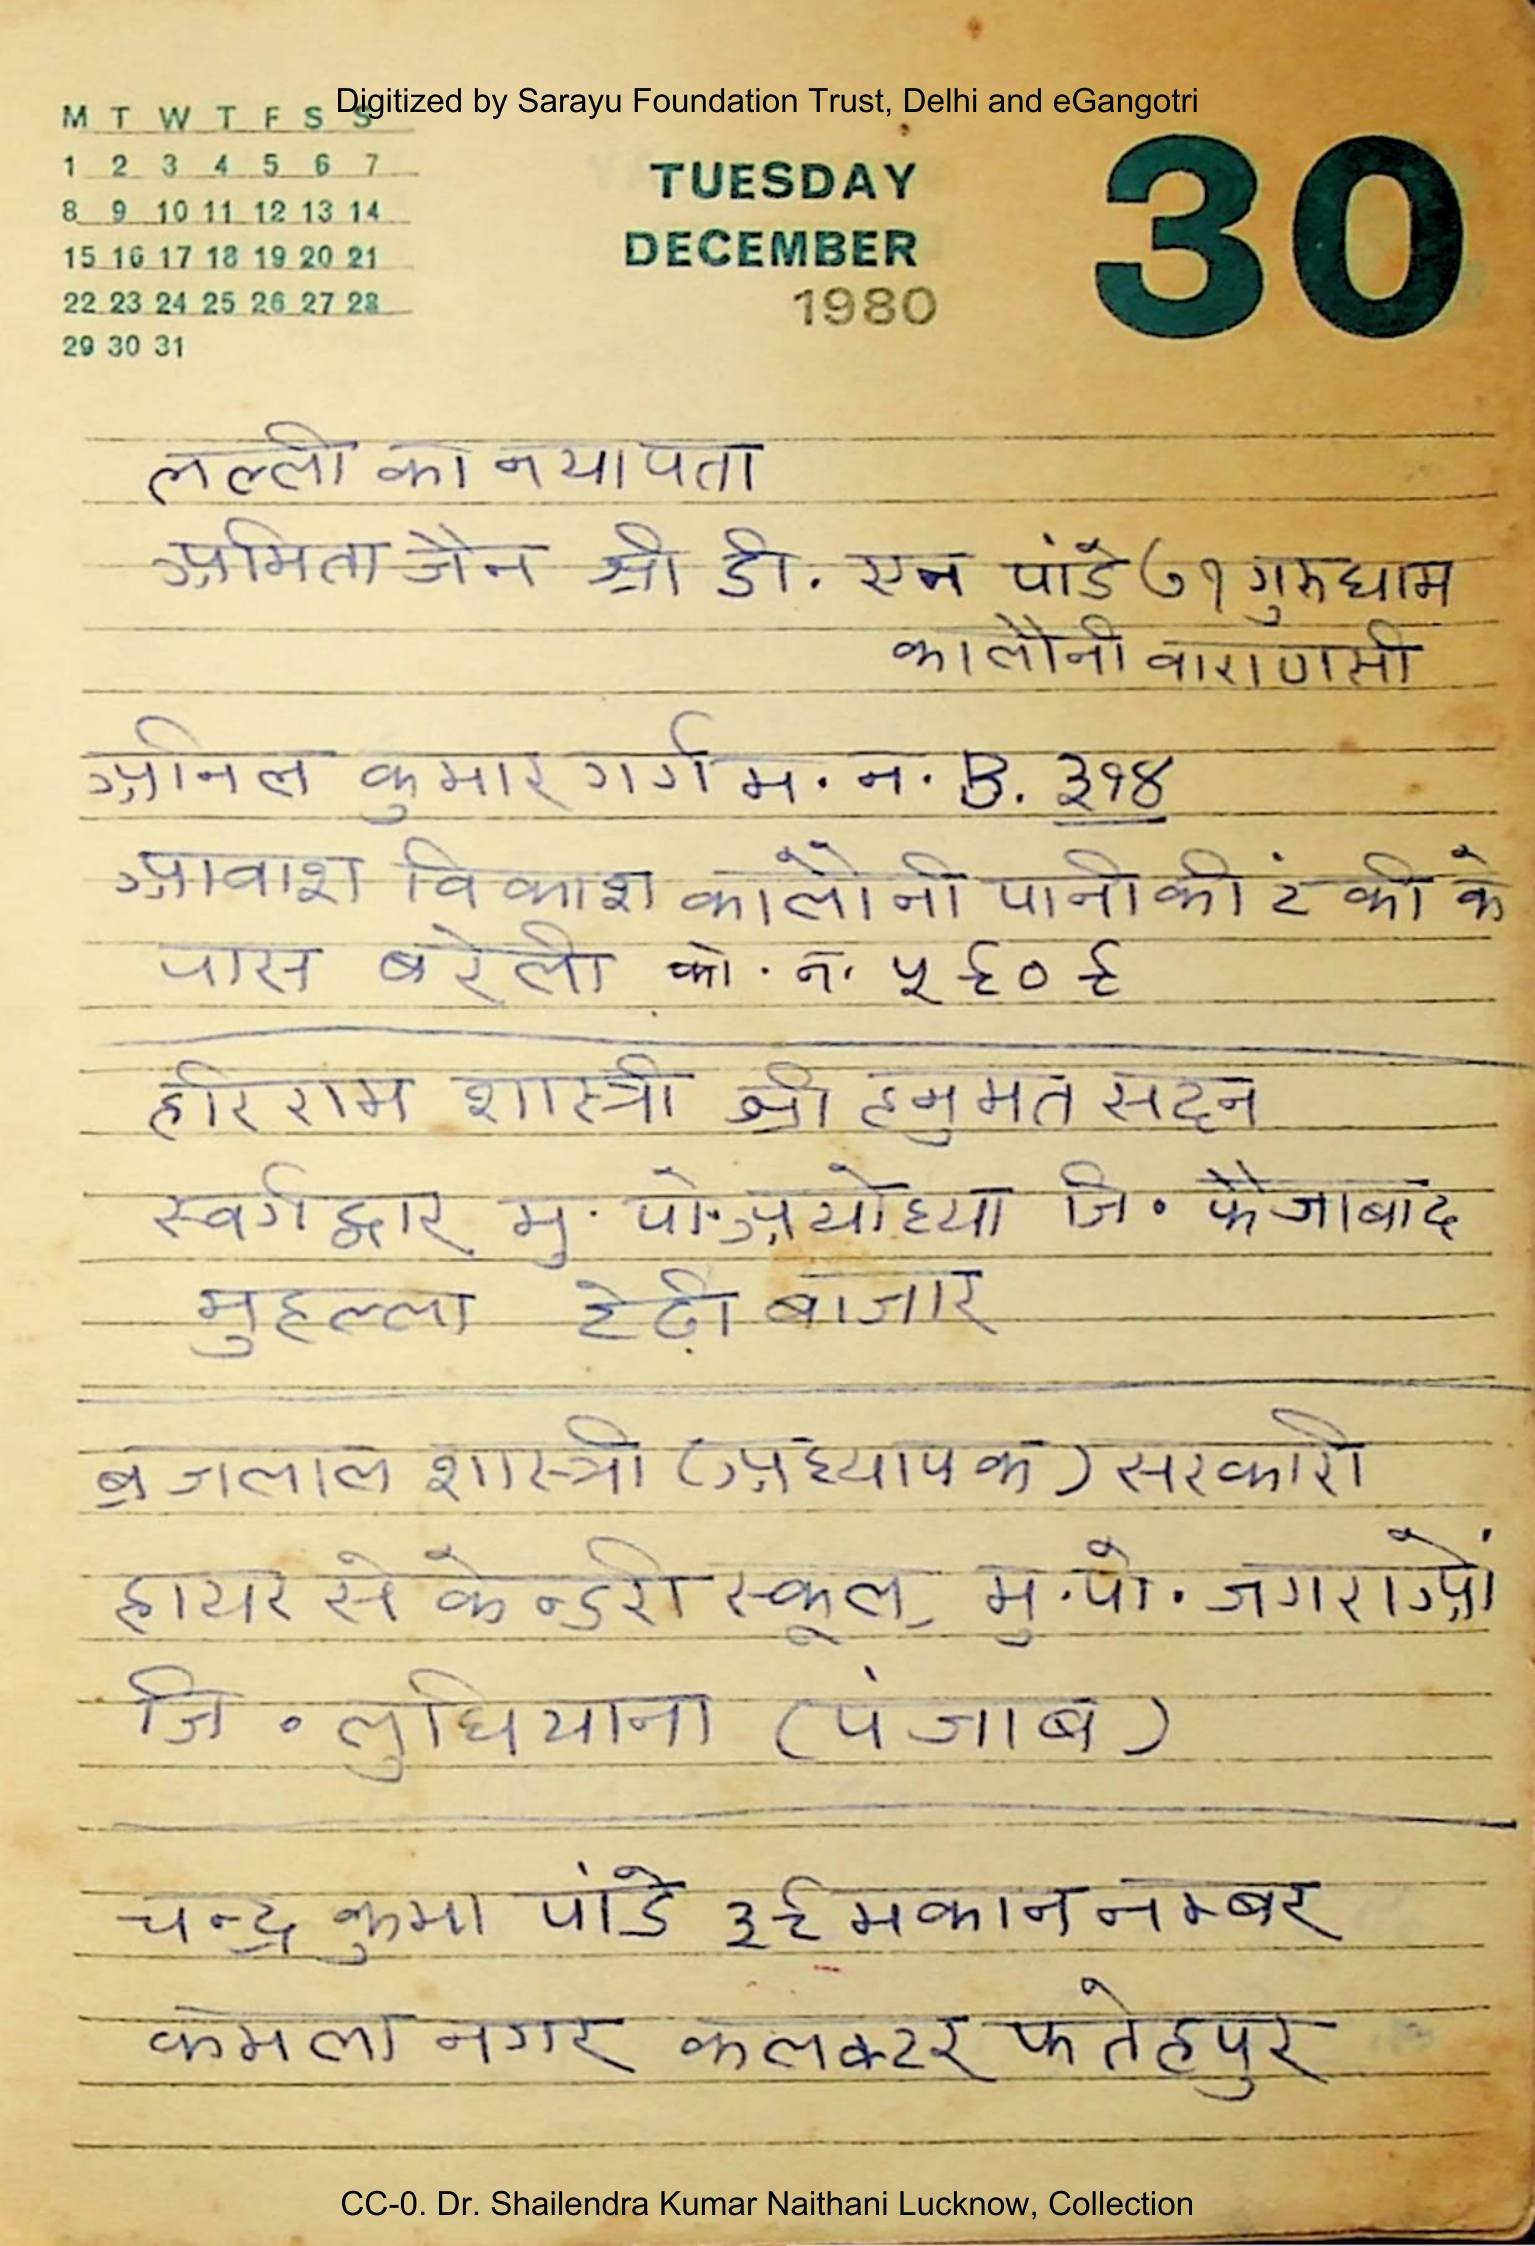 Digitized by Sarayu Foundation Trust, Delhi and eGangotri
M T W T F S S
1 2 3 4 5 6 7
8 9 10 11 12 13 14
15 16 17 18 19 20 21
22 23 24 25 26 27 28
29 30 31
TUESDAY
DECEMBER
1980
30
लल्ली का नया पता
अमिता जैन श्री डी. एन पांडे ७१ गुरुधाम
कालौनी वाराणसी
अनिल कुमार गर्ग म. न. B. ३१४
आवाश विकाश कालौनी पानी की टंकी के
पास बरेली को. न. ५६०६
हरि राम शास्त्री श्री हनुमत सदन
स्वर्गद्वार मु. पो. अयोध्या जि. फैजाबाद
मुहल्ला टेढ़ी बाजार
ब्रजलाल शास्त्री (अध्यापक) सरकारी
हायर सेकेन्डरी स्कूल, मु.पो. जगराओं
जि. लुधियाना (पंजाब)
चन्द्र कुमा पांडे ३६ मकान नम्बर
कमला नगर कलक्टर फतेहपुर
CC-0. Dr. Shailendra Kumar Naithani Lucknow, Collection